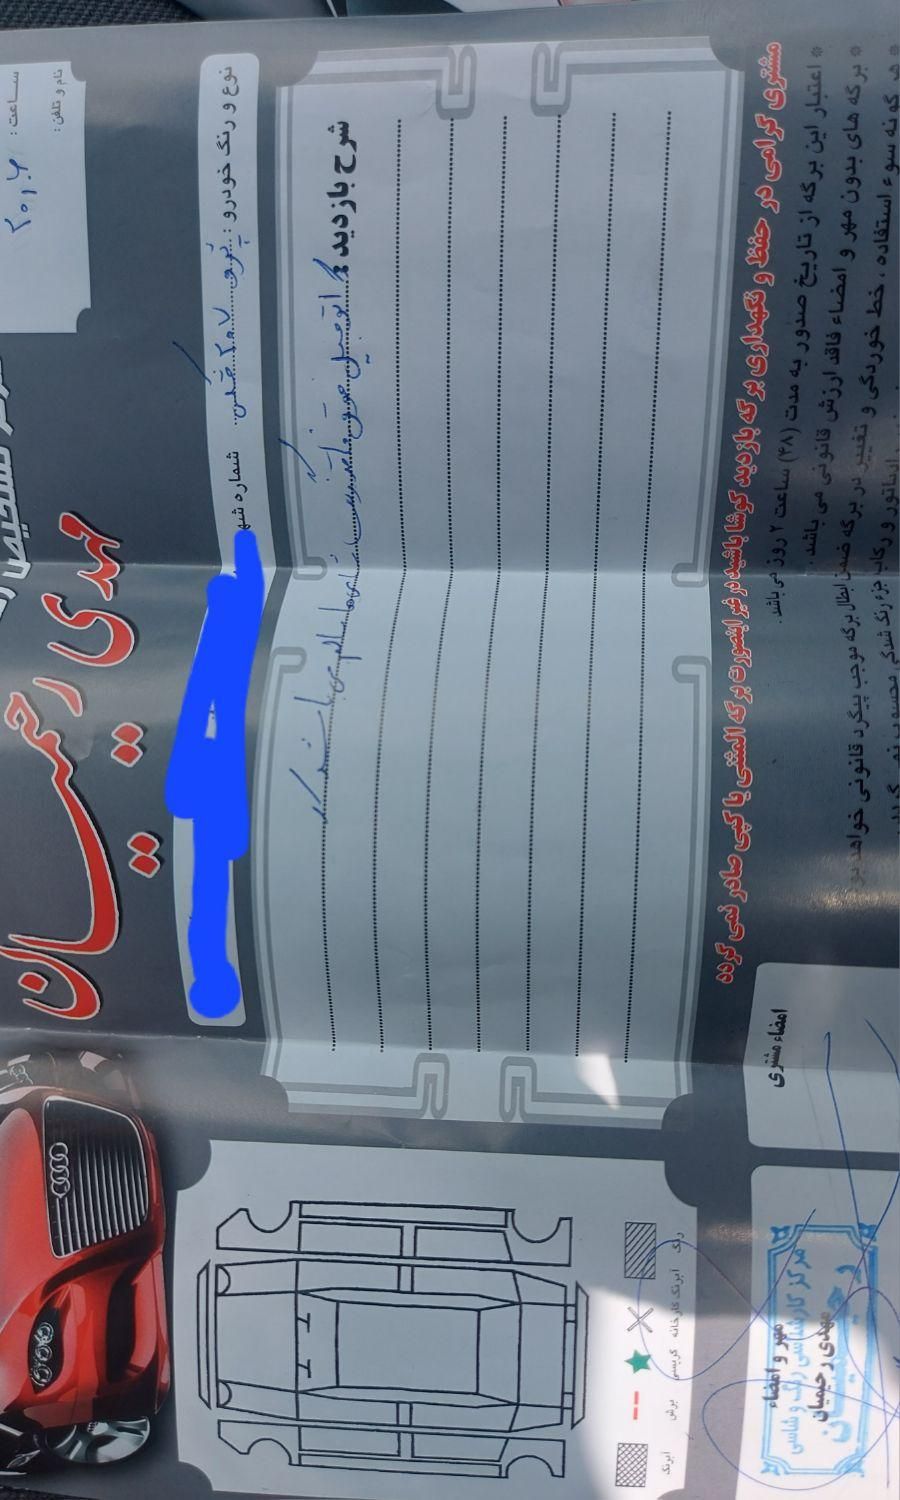 مهدی رحیمیان
نام و تلفن :
ساعت :
نوع و رنگ خودرو : پژو ۲۰۷ مشکی
شماره
شرح بازدید : اتومبیل فوق
سالم می باشد
مشتری گرامی در حفظ و نگهداری برگه بازدید کوشا باشید در غیر اینصورت برگه المثنی یا کپی صادر نمی گردد
* اعتبار این برگه از تاریخ صدور به مدت (۴۸) ساعت ۲ روز می باشد.
* برگه های بدون مهر و امضاء فاقد ارزش قانونی می باشد.
* هر گونه سوء استفاده، خط خوردگی و تغییر در برگه ضمن ابطال برگه موجب پیگرد قانونی خواهد
و رکاب جزء رنگ شدگی محسوب نمی
امضاء مشتری
مهر و امضاء
مهدی رحیمیان
مرکز کارشناسی رنگ و شاسی
رحیمیان
رنگ
آبرنگ کارخانه
برش
آبرنگ